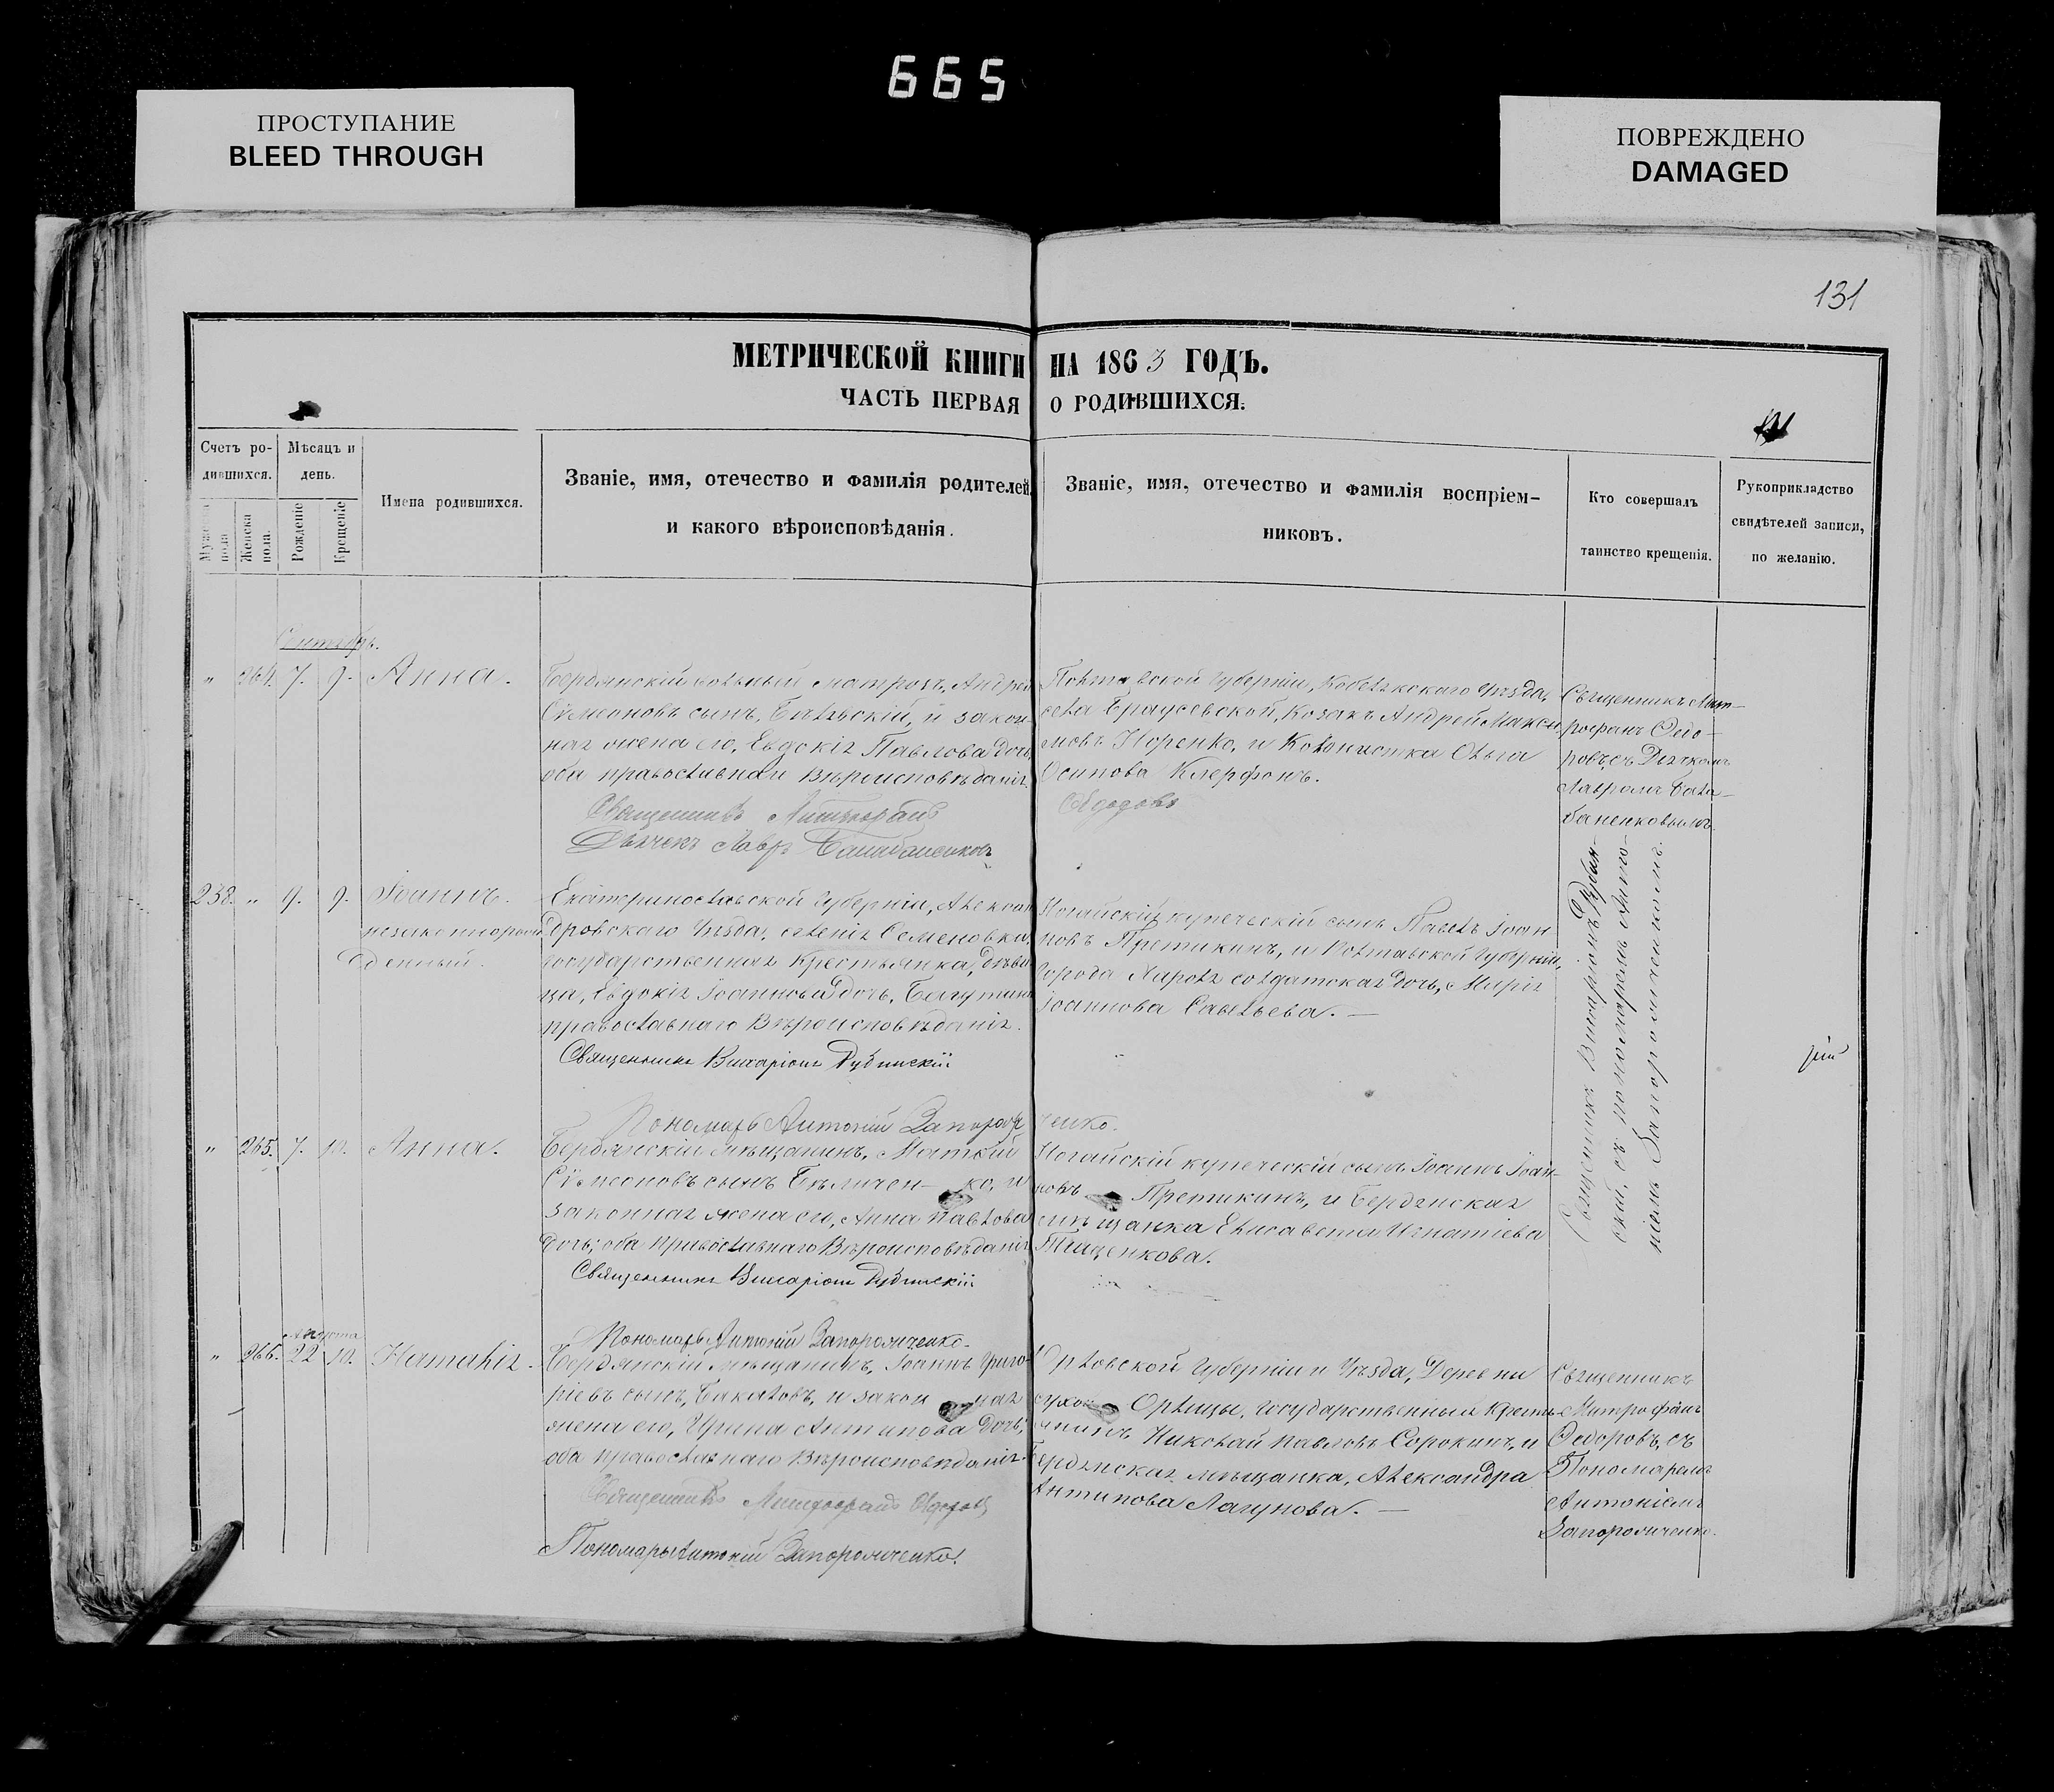 665
ПРОСТУПАНИЕ
BLEED THROUGH
ПОВРЕЖДЕНО
DAMAGED
131
МЕТРИЧЕСКОЙ КНИГИ НА 1863 ГОДЪ.
ЧАСТЬ ПЕРВАЯ О РОДИВШИХСЯ.
Счетъ ро-
дившихся.
Мужеска
пола
Женска
пола.
Мѣсяцъ и
день.
Рожденіе
Крещеніе
Имена родившихся.
Званіе, имя, отечество и фамилія родителей
и какого вѣроисповѣданія.
Званіе, имя, отечество и фамилія воспріем-
никовъ.
Кто совершалъ
таинство крещенія.
Рукоприкладство
свидѣтелей записи,
по желанію.
Сентябрь.
" 264. 7. 9. Анна.
Бердянскій вольный матрозъ, Андрей
Сѵмеоновъ сынъ, и закон-
ная жена его, Евдокія Павлова дочь,
оба православнаго Вѣроисповѣданія.
Священникъ Митрофанъ
Дьячекъ Лавръ Балабаненковъ
Полтавской Губерніи, Кобелякскаго Уѣзда,
села Браусевской, Козакъ Андрей Макси-
мовъ Норенко, и Колонистка Ольга
Осипова Клерфонъ.
Ѳедоровъ
Священникъ Мит-
рофанъ Ѳедо-
ровъ, съ Дьячкомъ
Лавромъ Бала-
баненковымъ.
238. " 9. 9. Іоаннъ.
незаконнорож-
денный.
Екатеринославской Губерніи, Алексан-
дровскаго Уѣзда, селенія Семеновки,
государственная Крестьянка, дѣви-
ца, Евдокія Іоаннова дочь,
православнаго Вѣроисповѣданія.
Священникъ Виссаріонъ Дубинскій
Пономарь Антоній Запорожченко.
Ногайскій купеческій сынъ Павелъ Іоан-
новъ Претикинъ, и Полтавской Губерніи,
города солдатская дочь, Марія
Іоаннова Савельева. —
Священникъ Виссаріонъ Дубин-
скій, съ пономаремъ Анто-
ніемъ Запорожченкомъ.
" 265. 7. 10. Анна.
Бердянскій мѣщанинъ, Матѳій
Сѵмеоновъ сынъ Бѣличен-ко, и
законная жена его, Анна Павлова
дочь; оба православнаго Вѣроисповѣданія
Священникъ Виссаріонъ Дубинскій
Пономарь Антоній Запорожченко.
Ногайскій купеческій сынъ Іоаннъ Іоан-
новъ Претикинъ, и Бердянская
мѣщанка Елисавета Игнатіева
Тищенкова.
Августа
" 266. 22 10. Наталія.
Бердянскій мѣщанинъ, Іоаннъ Григо-
ріевъ сынъ, Бакаловъ, и закон ная
жена его, Ирина Антипова дочь;
оба православнаго Вѣроисповѣданія.
Священникъ Митрофанъ Ѳедоровъ
Пономарь Антоній Запорожченко.
Орловской Губерніи и Уѣзда, Деревни
сухой Орлицы, государственный Кресть-
янинъ Николай Павловъ Сорокинъ, и
Бердянская мѣщанка, Александра
Антипова Лагунова. —
Священникъ
Митрофанъ
Ѳедоровъ, съ
Пономаремъ
Антоніемъ
Запорожченко.